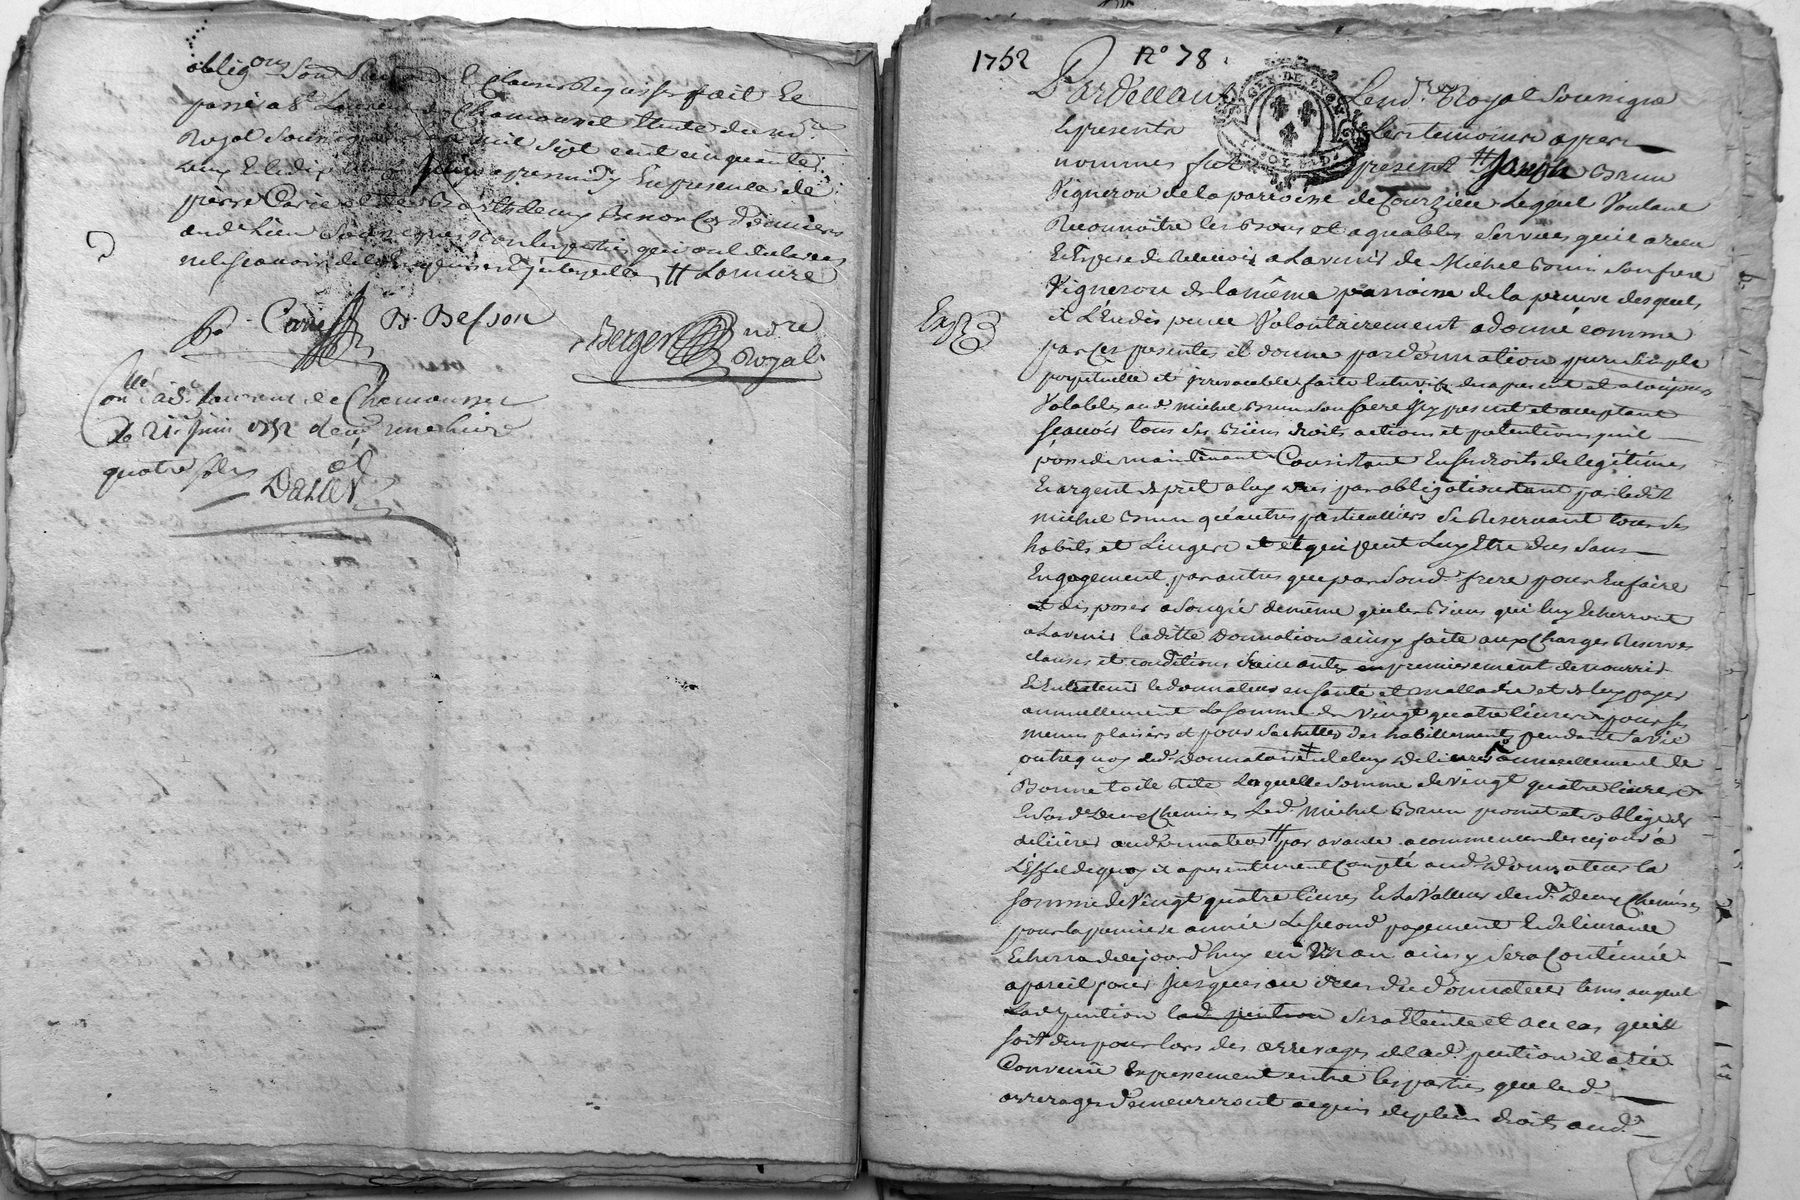 obligons Soum Renond Et Clauses Requises fait Et
passé a St Laurent de Chamousset Etude du nore
Royal Soussigné Lan mil Sept cent cinquante
deux Et le dix Juin apres midy En presence de
pierre Carie et de Barthelemy Besson Cordonniers
aud lieu Soussignés non les parties qui ont declaré
ne Scavoir de ce Enquises Et interpellés
P. Carie B. Besson
Berger nore
Royal
Conllé a St Laurent de Chamousset
le 21e Juin 1752 Reçu une livre
quatre sols
1752 No 78.
Pardevant Le nore Royal Soussigné
Et presents Les temoins apres
nommes fut present Joseph Brun
Vigneron de la paroisse de Courzieu Lequel Voulant
Reconnoitre les Bons et agreables Services qu'il a reçu
Et Espere de Recevoir a Lavenir de Michel Brun Son frere
Vigneron de la même paroisse de la preuve desquels
il L'En dispense Volontairement a donné comme
par Ces presentes il donne par donnation pure Simple
perpetuelle et irrevocable faite Entre vifs des apresent et a toujours
Valable aud. Michel Brun Son frere icy present et acceptant
Scavoir tous Ses Biens droits actions et pretentions qu'il
possede maintenant Consistant En Ses droits de legitimes
En argent de prêt a luy dus par obligations tant par ledit
michel Brun qu'autres particuliers Se Reservant tous Ses
habits et Linges et ce qui peut Luy Etre dus Sans
Engagement par autres que par Sond. frere pour En faire
et disposer a Son gré de même que les Biens qui luy Echerront
a Lavenir laditte Donnation ainsy faite aux Charges Reserves
clauses et conditions Suivantes premierement de nourrir
Et Entretenir le donnateur en Santé et malladie et de luy payer
annuellement La Somme de Vingt quatre livres pour Ses
menus plaisirs et pour S'achetter des habillements pendant Sa vie
outre quoy led. Donnataire de luy delivrer annuellement de
Bonne toile Rite Laquelle Somme de Vingt quatre livres
Et Sesd. Deux Chemises Led. Michel Brun promet et s'oblige de
delivrer aud Donnateur par avance a commencer de ce jour à
L'Effet de quoy il a presentement Compté aud. Donnateur la
Somme de Vingt quatre livres Et La Valleur desd. Deux Chemises
pour la premiere année Le Second payement Et delivrance
Echerra de ce jourd'huy en Un an ainsy Sera Continué
a pareil jour Jusques au deces du Donnateur tems auquel
Lad. pention lad. pention Sera Eteinte et au cas qu'il
Soit dus pour lors des arrerages de lad. pention il a été
Convenu Expressement entre les parties que led.
arrerages demeureront acquis de plein droit aud.